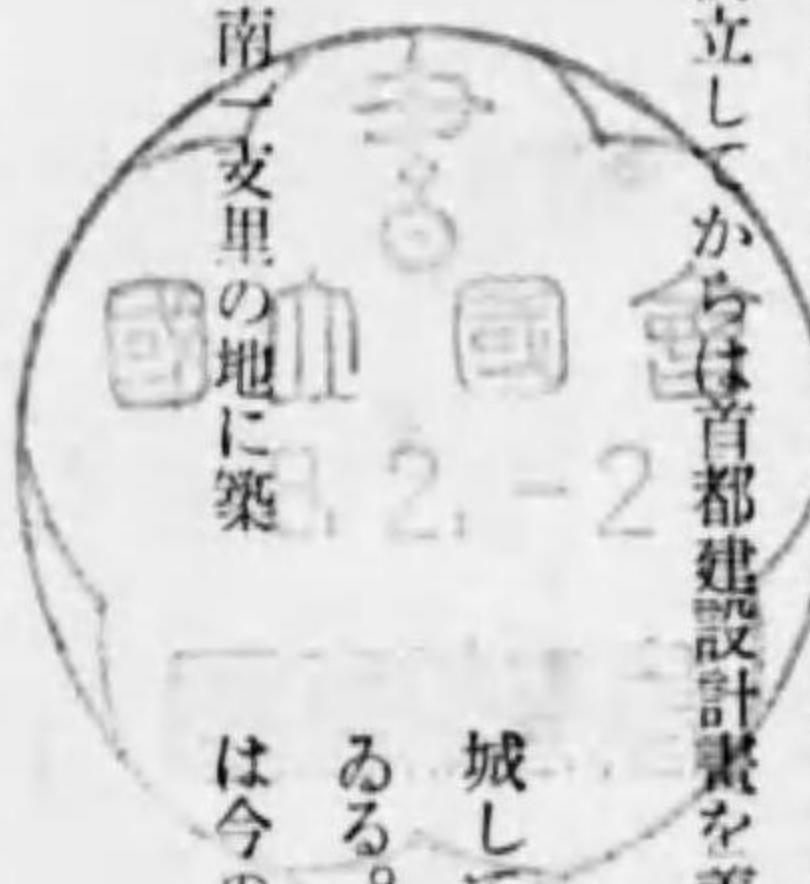 立してからは首都建設計畫を
城し
ゐる。
南一支里の地に築
は今の
國立國會
8. 2. -2